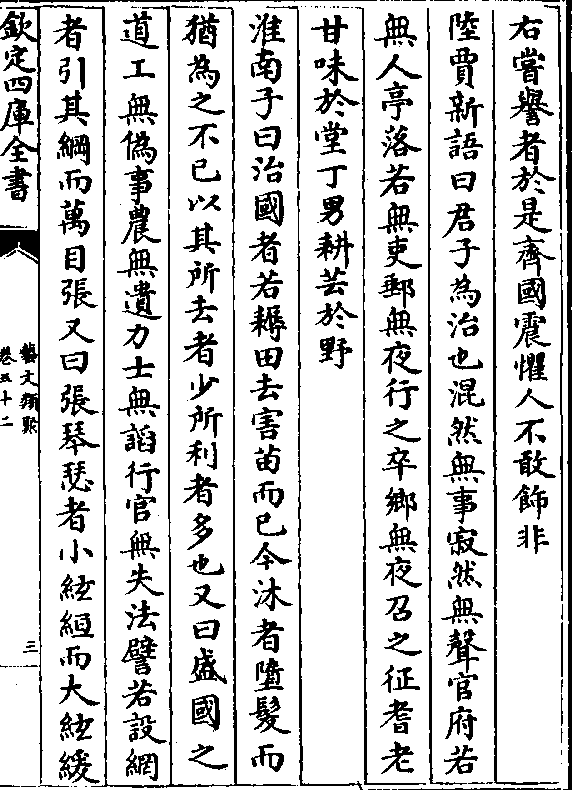 右嘗譽者於是齊國震懼人不敢飾非
陸賈新語曰君子為治也混然無事寂然無聲官府若
無人亭落若無吏郵無夜行之卒鄉無夜召之征耆老
甘味於堂丁男耕芸於野
淮南子曰治國者若耨田去害苗而已今沐者墮髮而
猶為之不已以其所去者少所利者多也又曰盛國之
道工無偽事農無遺力士無謟行官無失法譬若設網
者引其綱而萬目張又曰張琴瑟者小絃絙而大絃緩
欽定四庫全書
藝文類聚
卷五十二
三